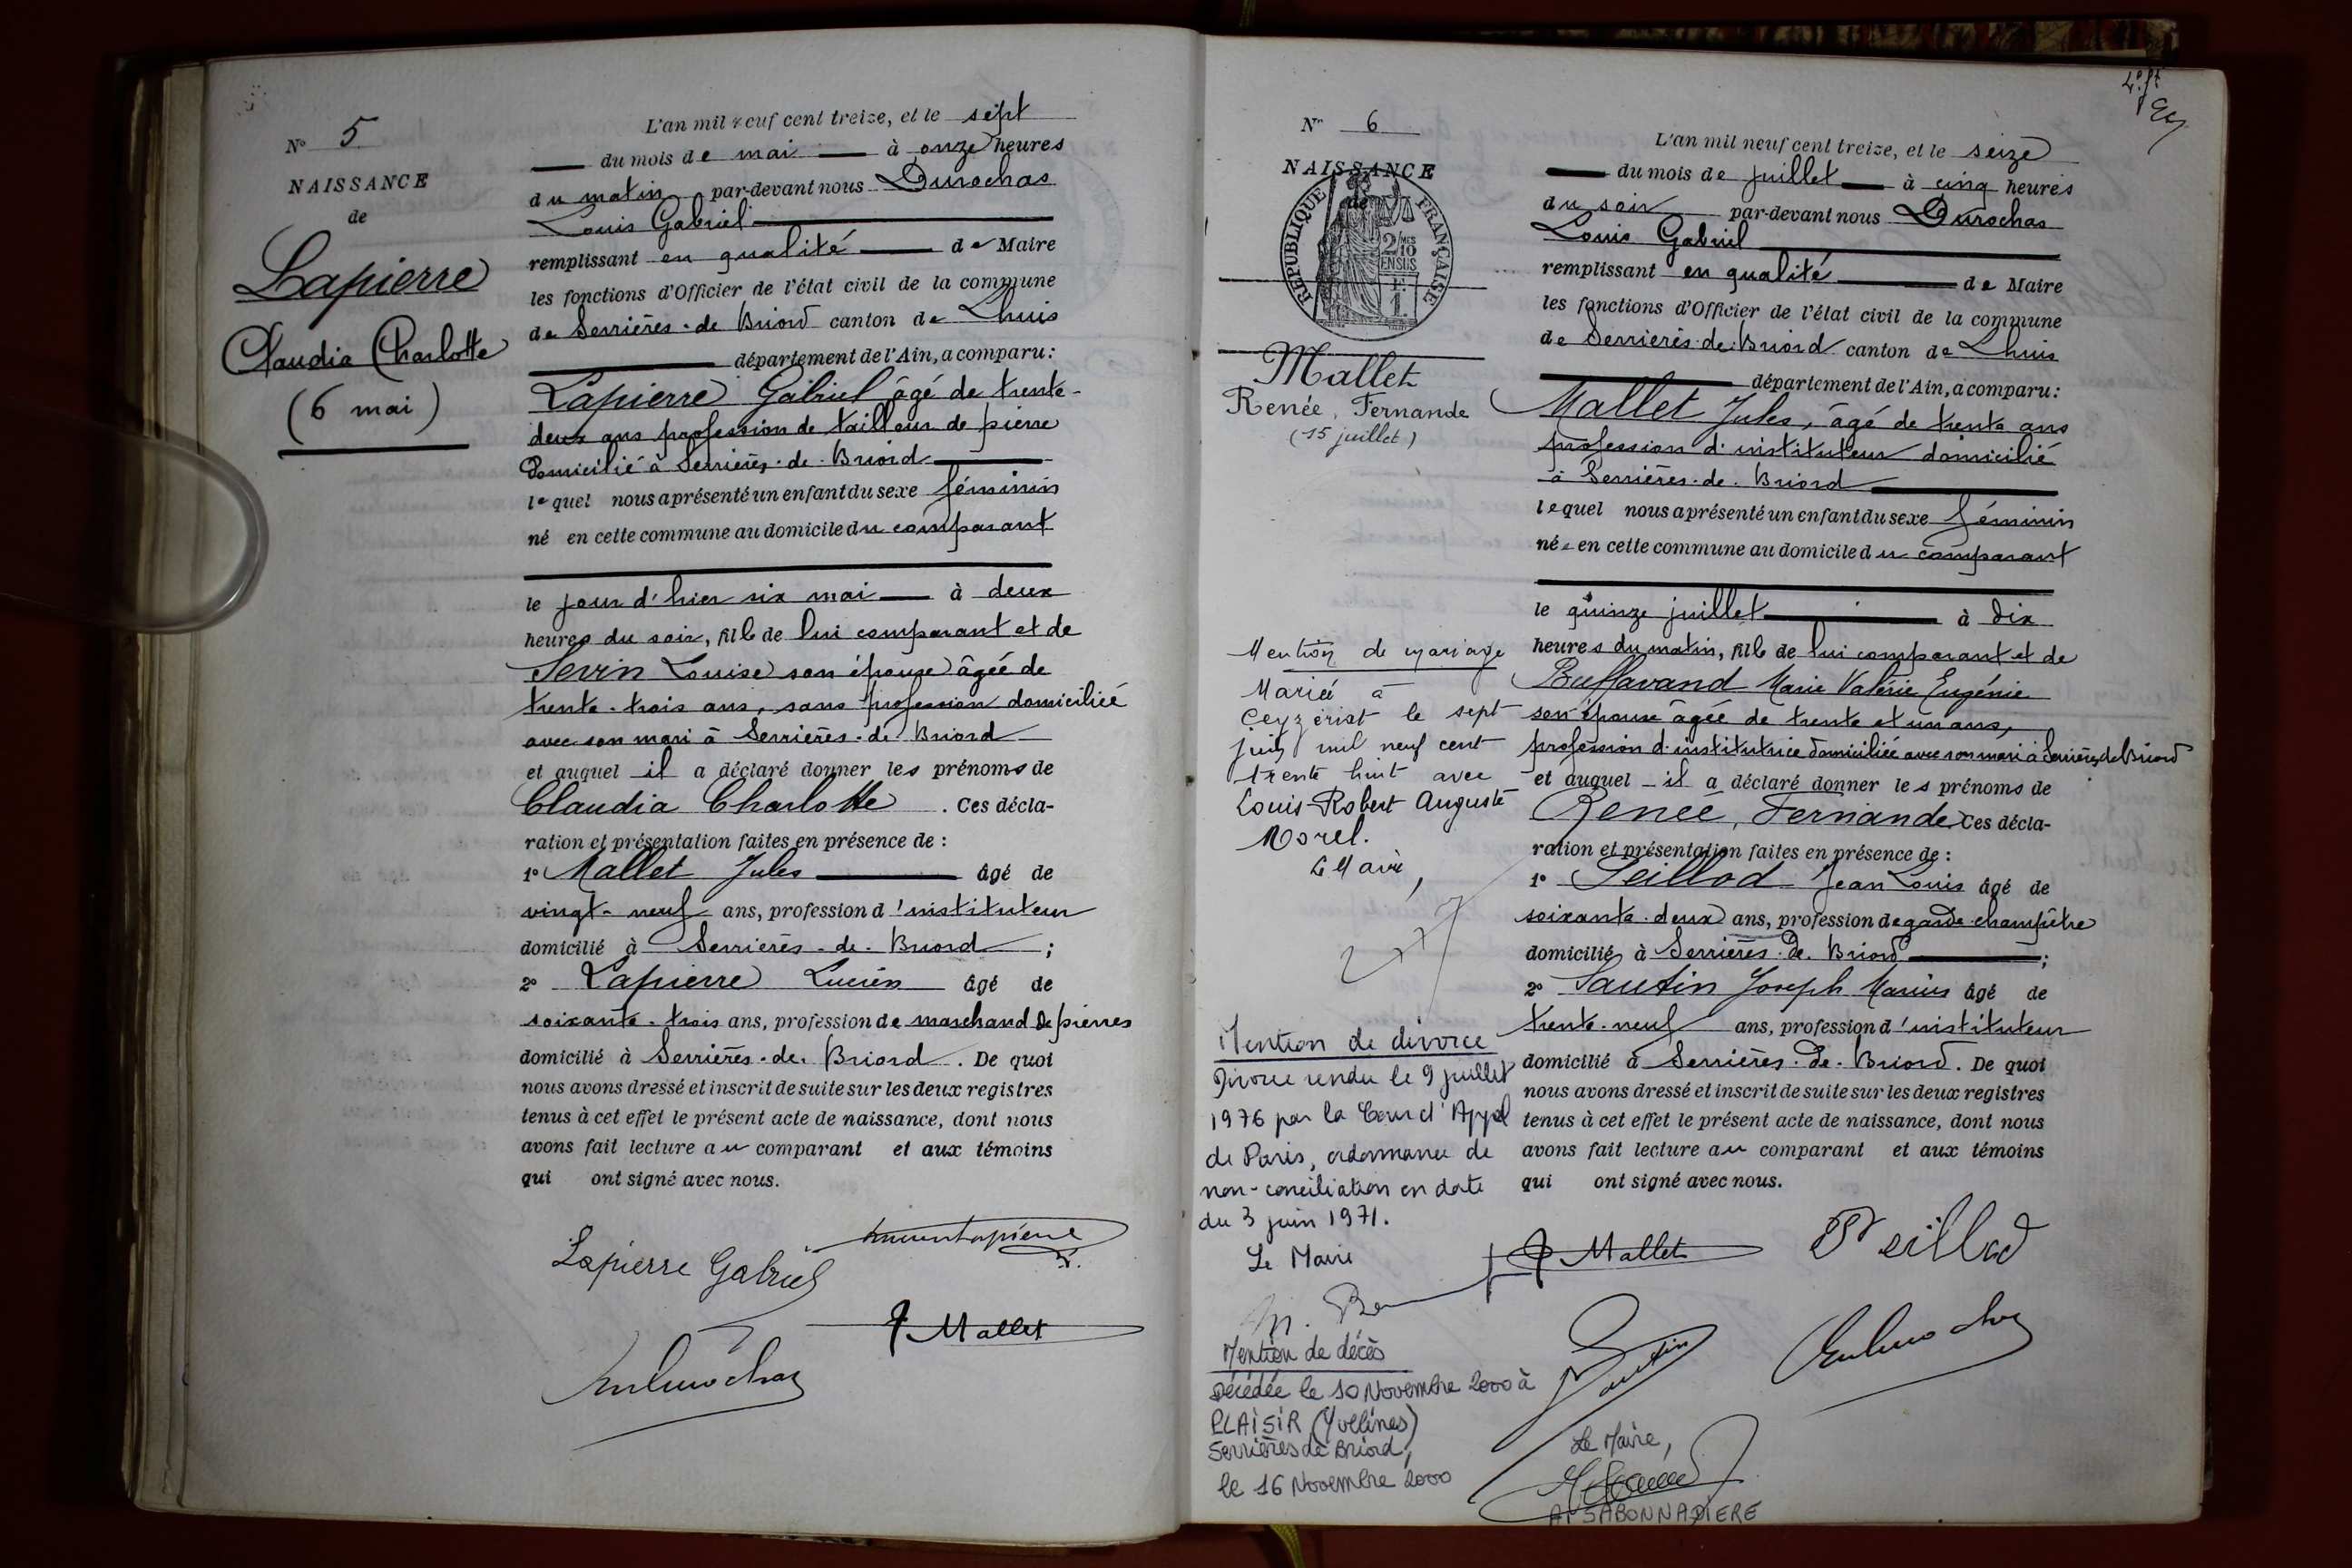 N° 5
NAISSANCE
de
Lapierre
Claudia Charlotte
(6 mai)
L'an mil neuf cent treize, et le sept
du mois de mai à onze heures
du matin par-devant nous Durochas
Louis Gabriel
remplissant en qualité de Maire
les fonctions d'Officier de l'état civil de la commune
de Serrières-de Briord canton de Lhuis
département de l'Ain, a comparu:
Lapierre Gabriel âgé de trente-
deux ans profession de tailleur de pierre
domicilié à Serrières-de-Briord
lequel nous a présenté un enfant du sexe féminin
né en cette commune au domicile du comparant
le jour d'hier six mai à deux
heures du soir, fille de lui comparant et de
Serrin Louise son épouse âgée de
trente-trois ans, sans profession domiciliée
avec son mari à Serrières-de-Briord
et auquel il a déclaré donner les prénoms de
Claudia Charlotte. Ces décla-
ration et présentation faites en présence de :
1° Mallet Jules âgé de
vingt-neuf ans, profession d'instituteur
domicilié à Serrières-de-Briord ;
2° Lapierre Lucien âgé de
soixante-trois ans, profession de marchand de pierres
domicilié à Serrières-de-Briord. De quoi
nous avons dressé et inscrit de suite sur les deux registres
tenus à cet effet le présent acte de naissance, dont nous
avons fait lecture au comparant et aux témoins
qui ont signé avec nous.
Lapierre Gabriel
J Mallet
N° 6
NAISSANCE
de
RÉPUBLIQUE FRANÇAISE
2/10 MES
EN SUS
1
Mallet
Renée, Fernande
(15 juillet)
Mention de mariage
Mariée à
Ceyzériat le sept
juin mil neuf cent
trente huit avec
Louis-Robert Auguste
Morel.
Le Maire,
Mention de divorce
Divorce rendu le 9 juillet
1976 par la Cour d'Appel
de Paris, ordonnance de
non-conciliation en date
du 3 juin 1971.
Le Maire
Mention de décès
Décédée le 10 Novembre 2000 à
PLAISIR (Yvelines)
Serrières de Briord,
le 16 Novembre 2000
L'an mil neuf cent treize, et le seize
du mois de juillet à cinq heures
du soir par-devant nous Durochas
Louis Gabriel
remplissant en qualité de Maire
les fonctions d'Officier de l'état civil de la commune
de Serrières-de-Briord canton de Lhuis
département de l'Ain, a comparu:
Mallet Jules, âgé de trente ans
profession d'instituteur domicilié
à Serrières-de-Briord
lequel nous a présenté un enfant du sexe féminin
née en cette commune au domicile du comparant
le quinze juillet à dix
heures du matin, fille de lui comparant et de
Buffavand Marie Valérie Eugénie
son épouse âgée de trente et un ans,
profession d'institutrice domiciliée avec son mari à Serrières de Briord
et auquel il a déclaré donner les prénoms de
Renée, Fernande. Ces décla-
ration et présentation faites en présence de :
1° Seillod Jean Louis âgé de
soixante-deux ans, profession de garde-champêtre
domicilié à Serrières-de-Briord ;
2° Sautin Joseph Marius âgé de
trente-neuf ans, profession d'instituteur
domicilié à Serrières-de-Briord. De quoi
nous avons dressé et inscrit de suite sur les deux registres
tenus à cet effet le présent acte de naissance, dont nous
avons fait lecture au comparant et aux témoins
qui ont signé avec nous.
J Mallet
Seillod
Sautin
Le Maire,
SABONNADIERE